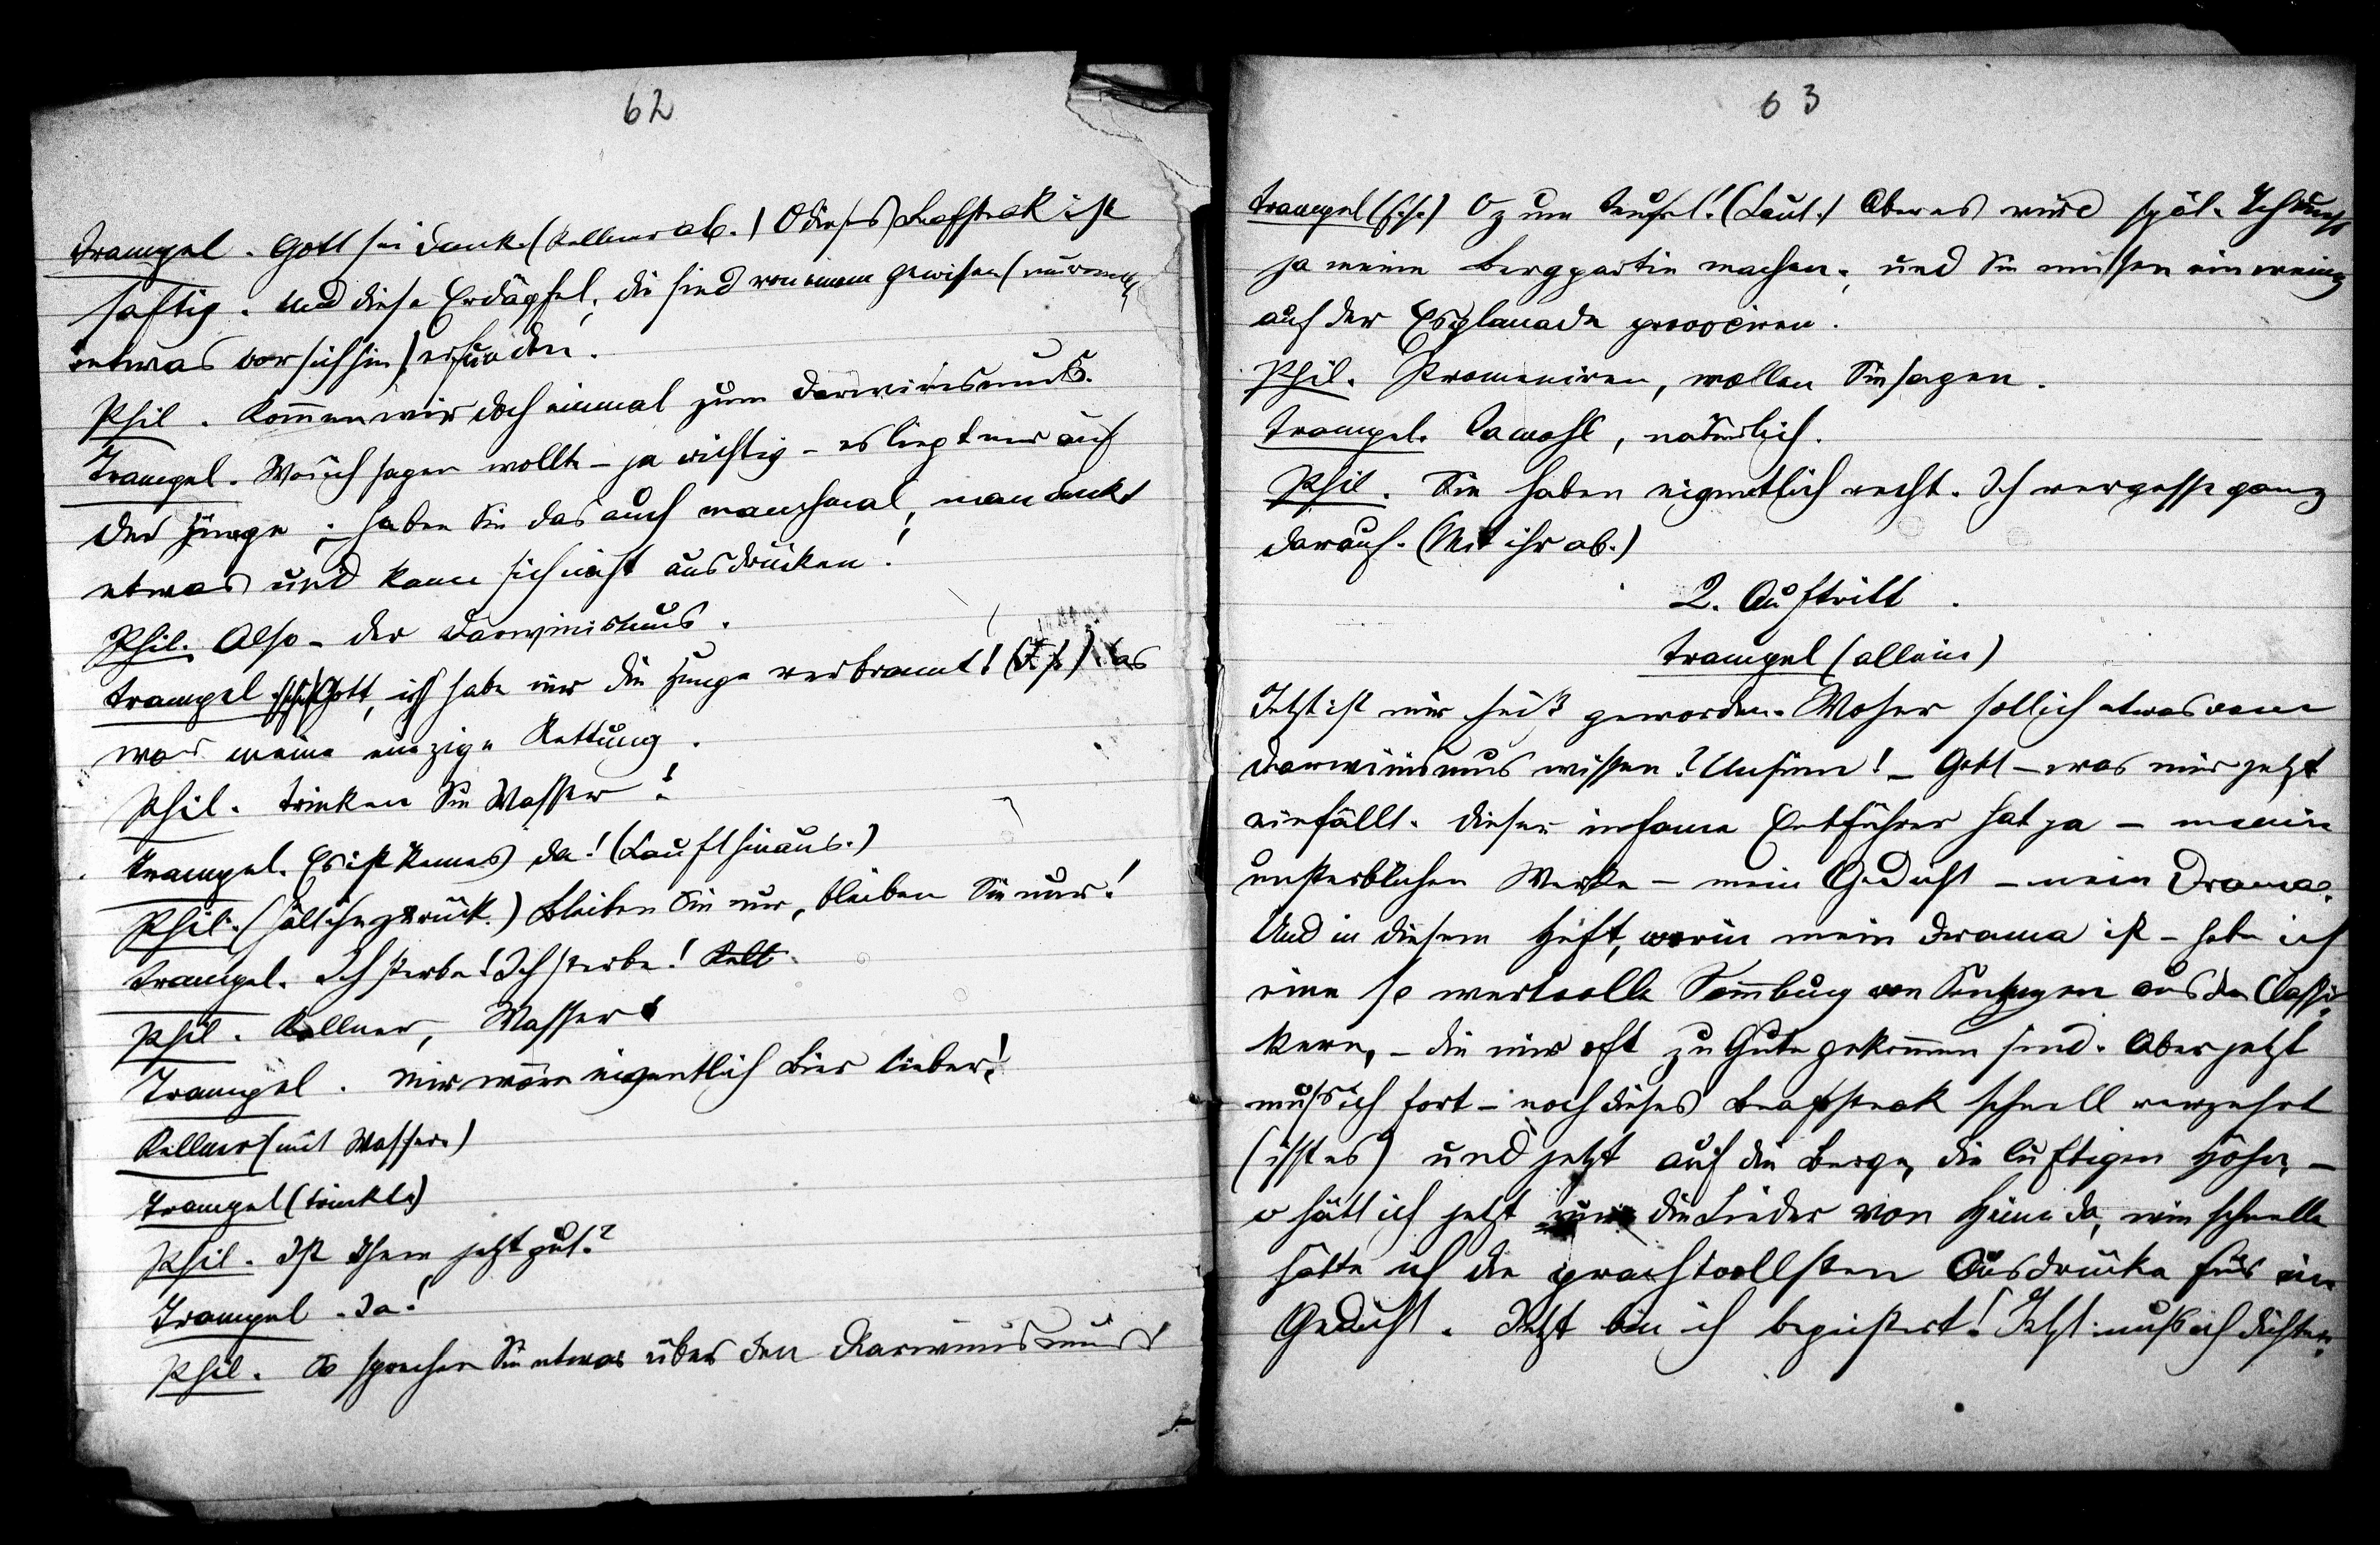 62
Trampel. Gott sei dank. (Kellner ab.) O dieses Beafsteak ist
saftig. Und diese Erdäpfel, die sind von einem gewissen (murmelt
etwas vor sich hin) erfunden.
Phil. Kommen wir doch einmal zum Darwinismus.
Trampel. Was ich sagen wollte – ja richtig – es liegt mir auf
der Zunge; – haben Sie das auch manchmal, man denkt
etwas und kann sich nicht ausdrücken!
Phil. Also – der Darwinismus.
Trampel. Gott, ich habe mir die Zunge verbrannt! (F. s.) Das
war meine einzige Rettung.
Phil. Trinken Sie Wasser!
Trampel. Es ist keines da! (Lauft hinaus.)
Phil. (hält ihn zurück.) Bleiben Sie nur, bleiben Sie nur!
Trampel. Ich sterbe! Ich sterbe!
Phil. Kellner, Wasser!
Trampel. Mir wäre eigentlich Bier lieber!
Kellner (mit Wasser.)
Trampel (trinkt.)
Phil. Ist Ihnen jetzt gut?
Trampel. Ja!
Phil. So sprechen Sie etwas über den Darwinismus!
63
Trampel (f. s.) O zum Teufel! (Laut.) Aber es wird spät. Ich muss
ja meine Bergpartie machen; und Sie müssen ein wenig
auf der Esplanade
Phil. Promeniren, wollen Sie sagen.
Trampel. Jawohl, natürlich.
Phil. Sie haben eigentlich recht. Ich vergesse ganz
darauf. (Mit ihr ab.)
2. Auftritt.
Trampel (allein)
Jetzt ist mir heiß geworden. Woher soll ich etwas vom
Darwinismus wissen? Unsinn! – Gott – was mir jetzt
einfällt. Dieser infame Entführer hat ja – meine
unsterblichen Werke – mein Gedicht – mein Drama.
Und in diesem Heft, worin mein Drama ist – habe ich
eine so wertvolle Sammlung von Sentenzen aus den Classi-
kern, – die mir oft zu Gute gekommen sind. Aber jetzt
muss ich fort – noch dieses Beafsteak schnell verzehrt
(isst es) und jetzt auf die Berge, die luftigen Höhen, –
o hätt ich jetzt nur die Lieder von Heine da, wie schnelle
hätte ich die prachtvollsten Ausdrücke für ein
Gedicht. Jetzt bin ich begeistert! Jetzt muss ich dichten.